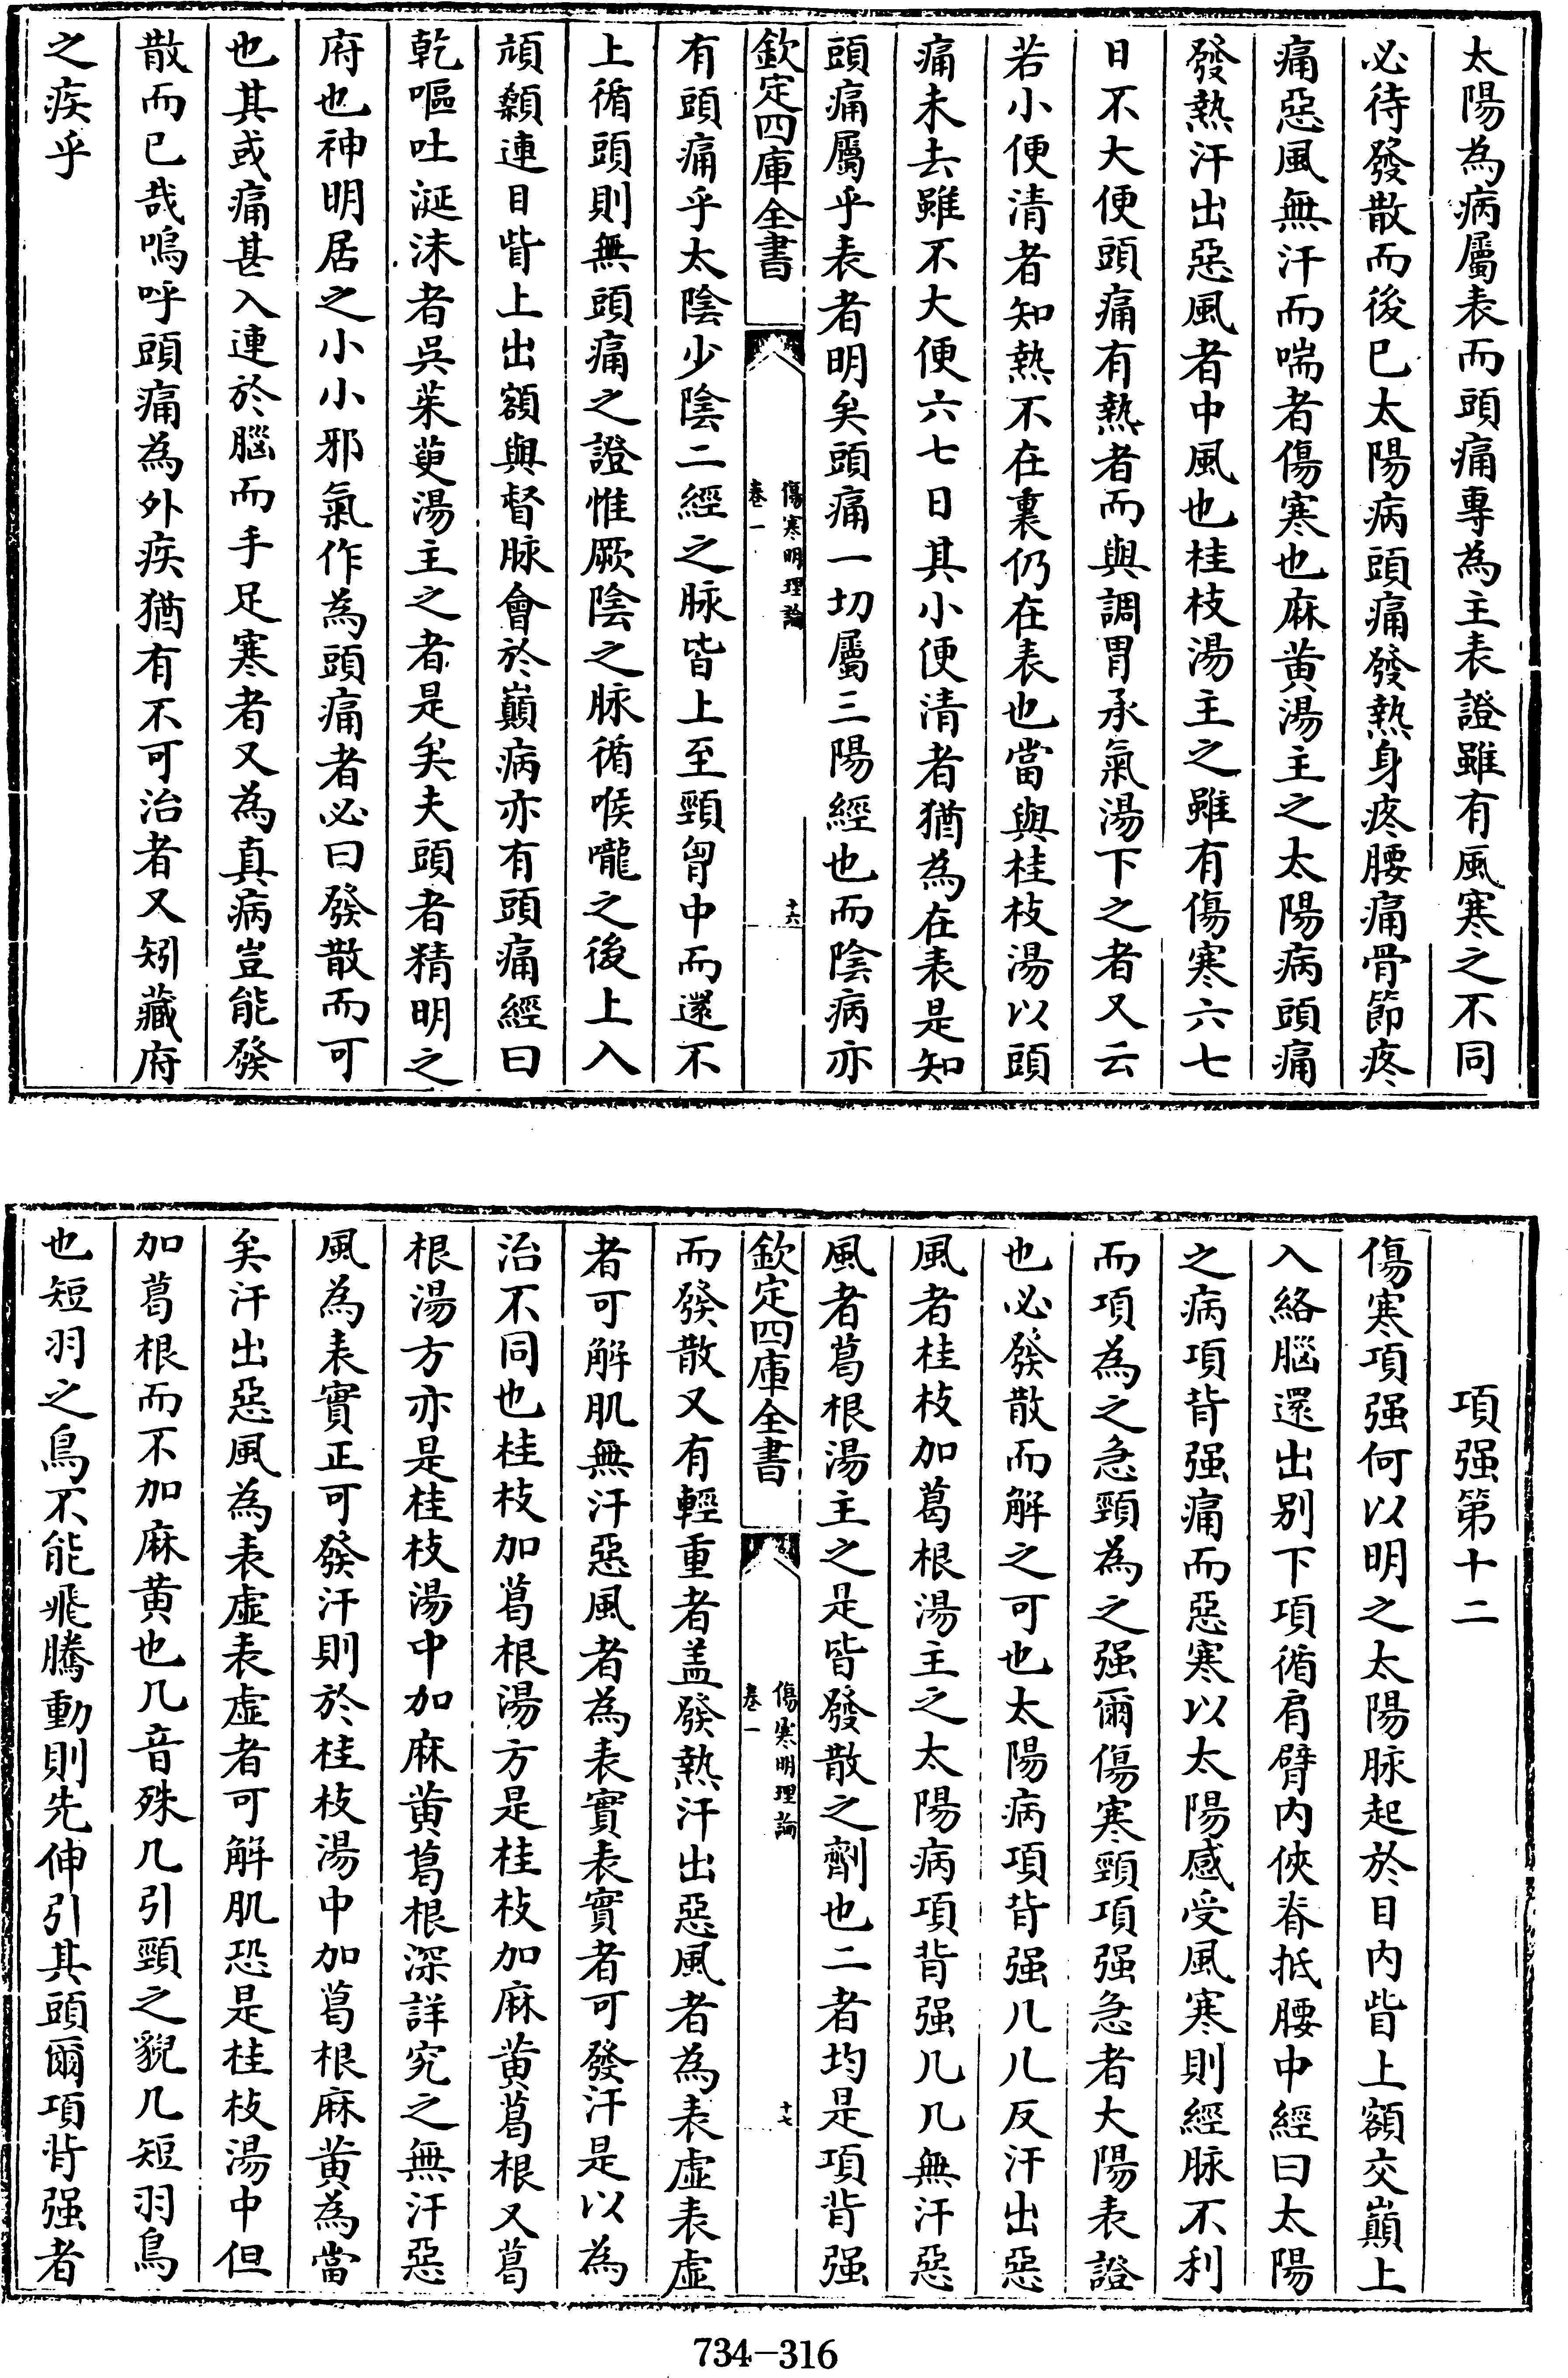 太陽為病屬表而頭痛專為主表證雖有風寒之不同
必待發散而後已太陽病頭痛發熱身疼腰痛骨節疼
痛惡風無汗而喘者傷寒也麻黄湯主之太陽病頭痛
發熱汗出惡風者中風也桂枝湯主之雖有傷寒六七
日不大便頭痛有熱者而與調胃承氣湯下之者又云
若小便清者知熱不在裏仍在表也當與桂枝湯以頭
痛未去雖不大便六七日其小便清者猶為在表是知
頭痛屬乎表者明矣頭痛一切屬三陽經也而陰病亦
欽定四庫全書
傷寒明理論
卷一
十六
有頭痛乎太陰少陰二經之脉皆上至頸胷中而還不
上循頭則無頭痛之證惟厥陰之脉循喉嚨之後上入
頏顙連目眥上出額與督脉會於巔病亦有頭痛經曰
乾嘔吐涎沫者吳茱萸湯主之者是矣夫頭者精明之
府也神明居之小小邪氣作為頭痛者必曰發散而可
也其或痛甚入連於腦而手足寒者又為真病豈能發
散而已哉嗚呼頭痛為外疾猶有不可治者又矧藏府
之疾乎
項强第十二
傷寒項强何以明之太陽脉起於目内眥上額交巔上
入絡腦還出别下項循肩臂内俠脊抵腰中經曰太陽
之病項背强痛而惡寒以太陽感受風寒則經脉不利
而項為之急頸為之强爾傷寒頸項强急者大陽表證
也必發散而解之可也太陽病項背强几几反汗出惡
風者桂枝加葛根湯主之太陽病項背强几几無汗惡
風者葛根湯主之是皆發散之劑也二者均是項背强
欽定四庫全書
傷寒明理論
卷一
十七
而發散又有輕重者盖發熱汗出惡風者為表虚表虚
者可解肌無汗惡風者為表實表實者可發汗是以為
治不同也桂枝加葛根湯方是桂枝加麻黄葛根又葛
根湯方亦是桂枝湯中加麻黄葛根深詳究之無汗惡
風為表實正可發汗則於桂枝湯中加葛根麻黄為當
矣汗出惡風為表虚表虚者可解肌恐是桂枝湯中但
加葛根而不加麻黄也几音殊几引頸之貌几短羽鳥
也短羽之鳥不能飛騰動則先伸引其頭爾項背强者
734-316